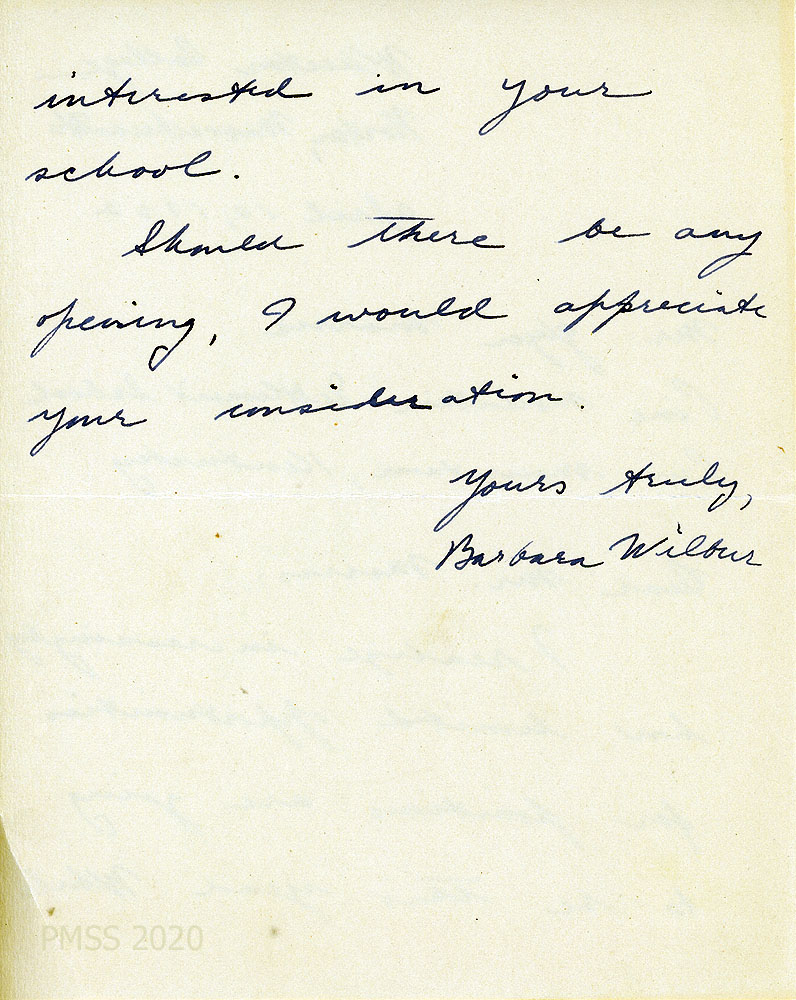 interested in your
school.
Should there be any
opening, I would appreciate
your consideration.
Yours truly,
Barbara Wilbur
PMSS 2020